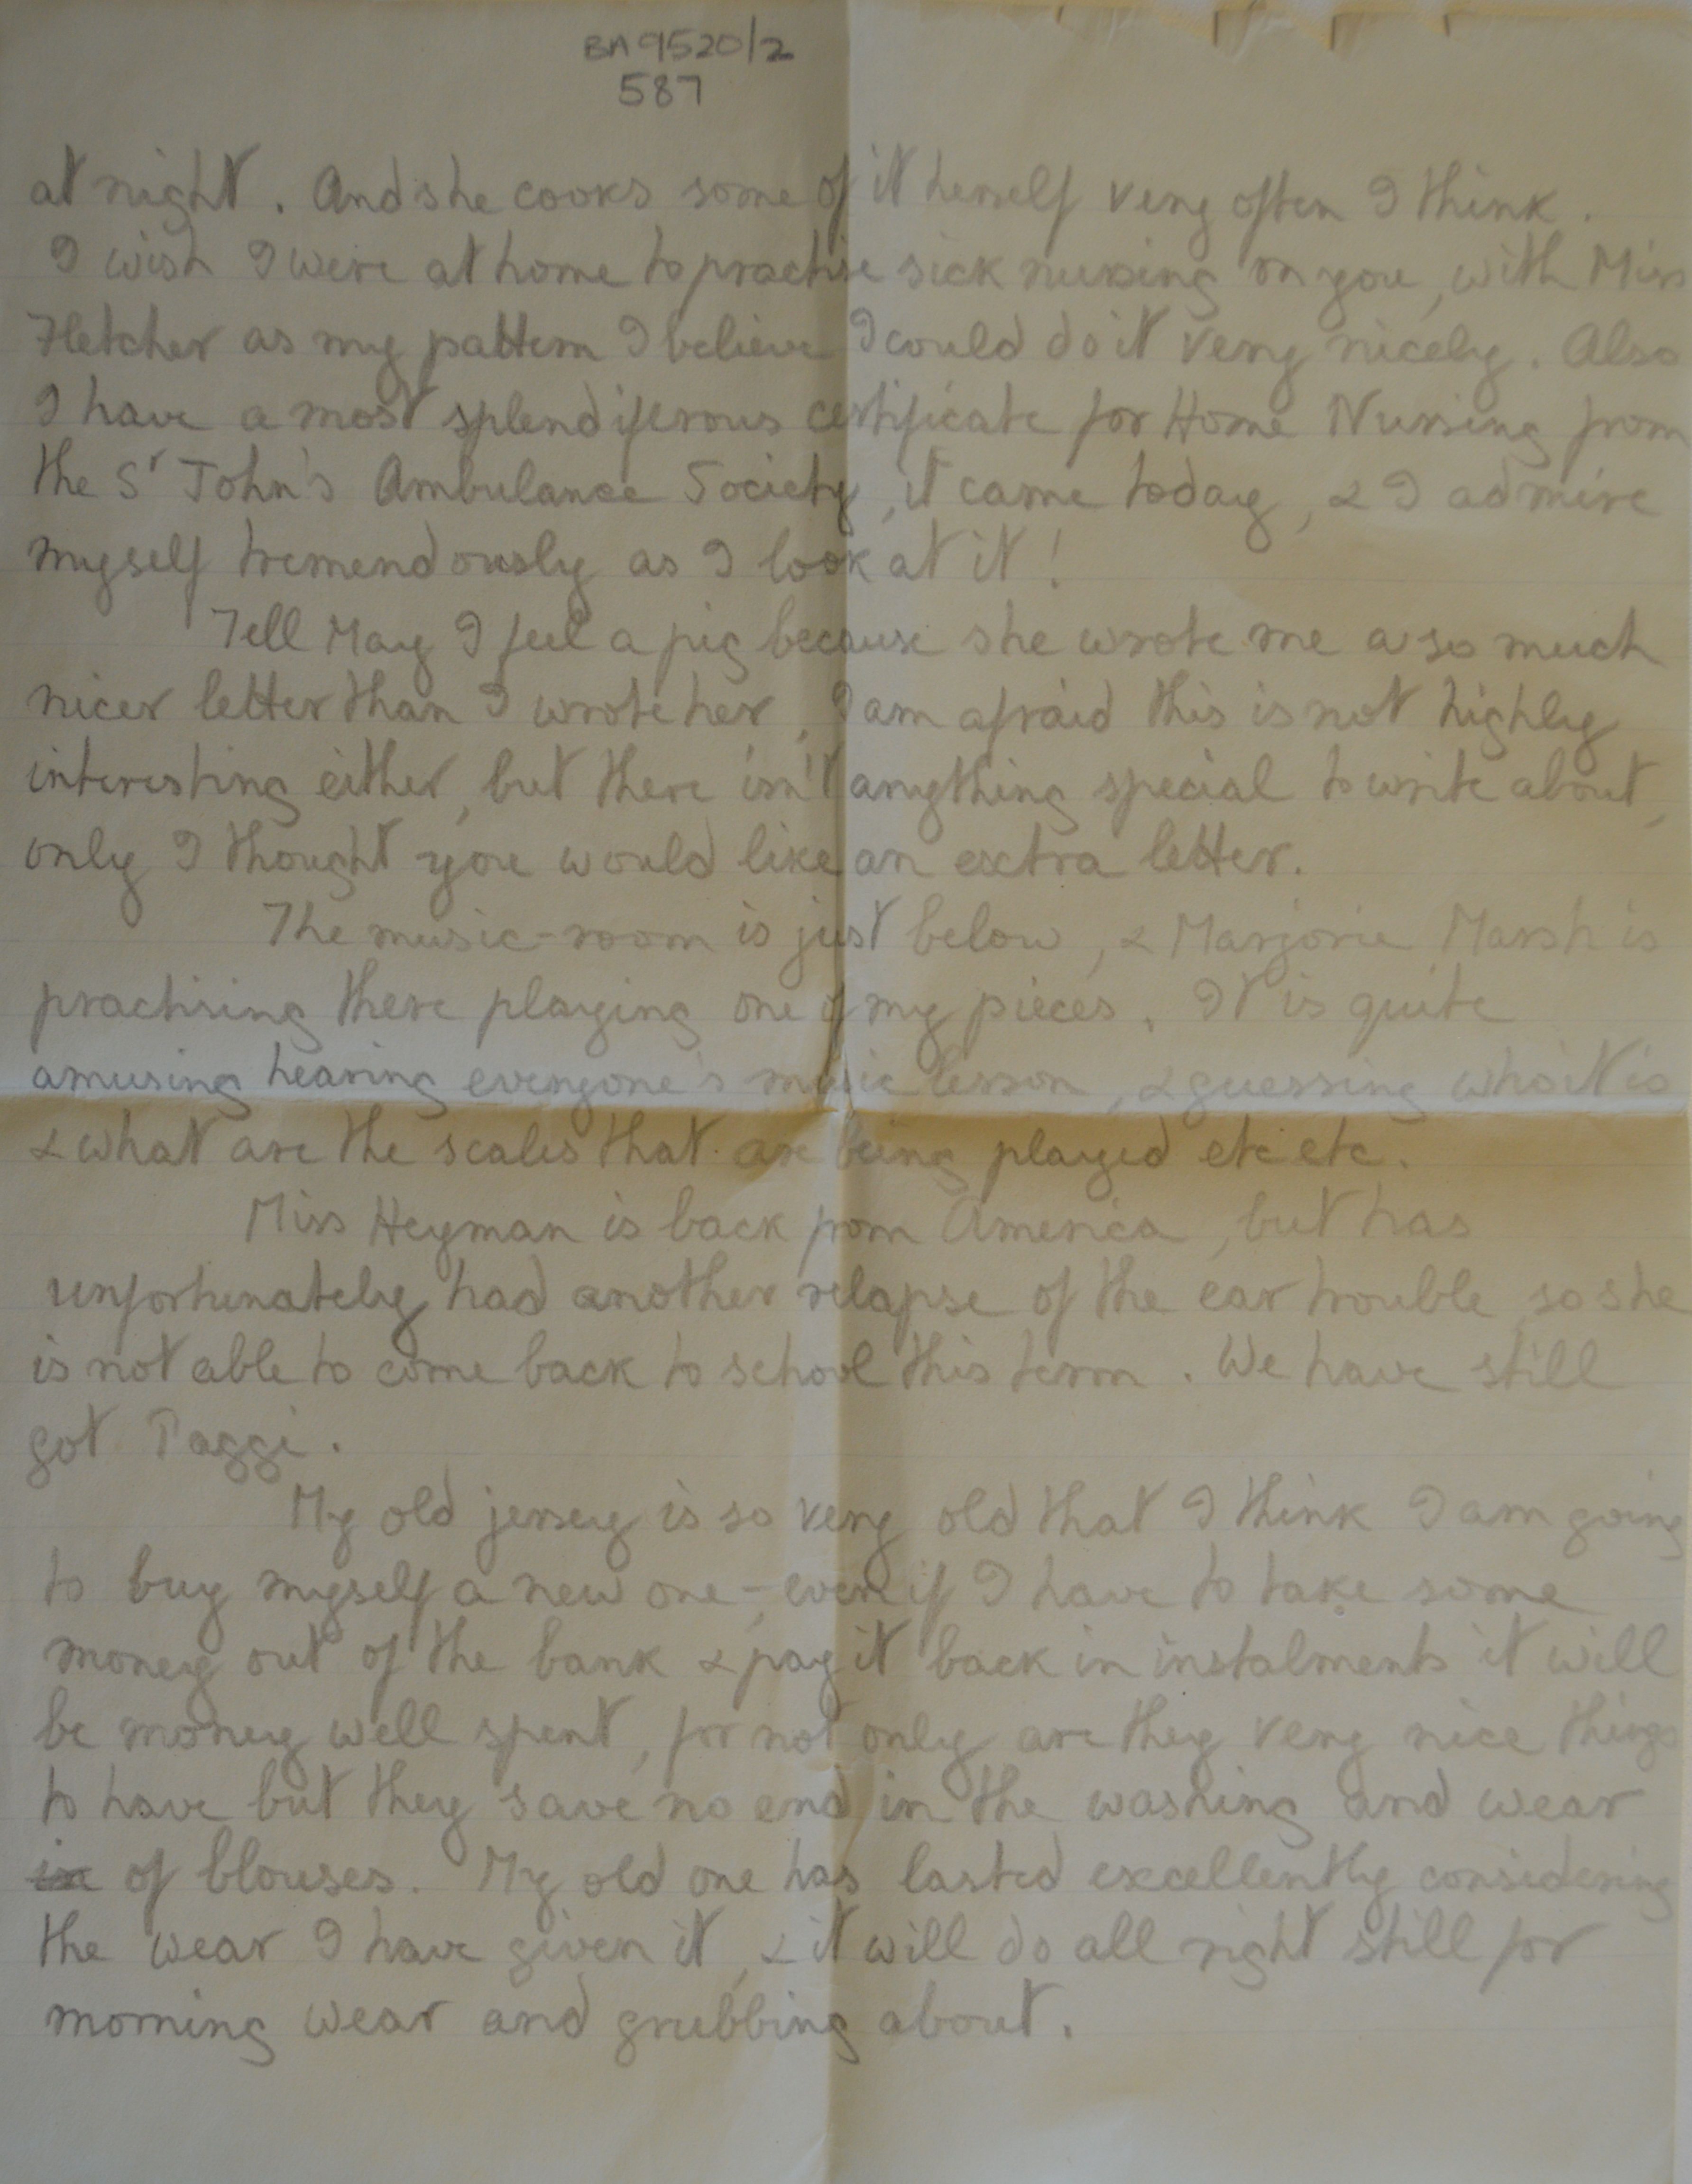 BA 9520/2
587
at night. And she cooks some of it herself very often I think.
I wish I were at home to practise sick nursing on you, with Miss
Fletcher as my pattern I believe I could do it very nicely. Also
I have a most splendiferous certificate for Home Nursing from
the St John's Ambulance Society, it came today, & I admire
myself tremendously as I look at it!
Tell May I feel a pig because she wrote me a so much
nicer letter than I wrote her, I am afraid this is not highly
interesting either, but there isn't anything special to write about,
only I thought you would like an extra letter.
The music-room is just below, & Marjorie Marsh is
practising there playing one of my pieces. It is quite
amusing hearing everyone's music lesson, & guessing who it is
& what are the scales that are being played etc etc.
Miss Heyman is back from America, but has
unfortunately had another relapse of the ear trouble so she
is not able to come back to school this term. We have still
got Paggi.
My old jersey is so very old that I think I am going
to buy myself a new one -, even if I have to take some
money out of the bank & pay it back in instalments it will
be money well spent, for not only are they very nice things
to have but they save no end in the washing and wear
in of blouses. My old one has lasted excellently considering
the wear I have given it, & it will do all right still for
morning wear and grubbing about.